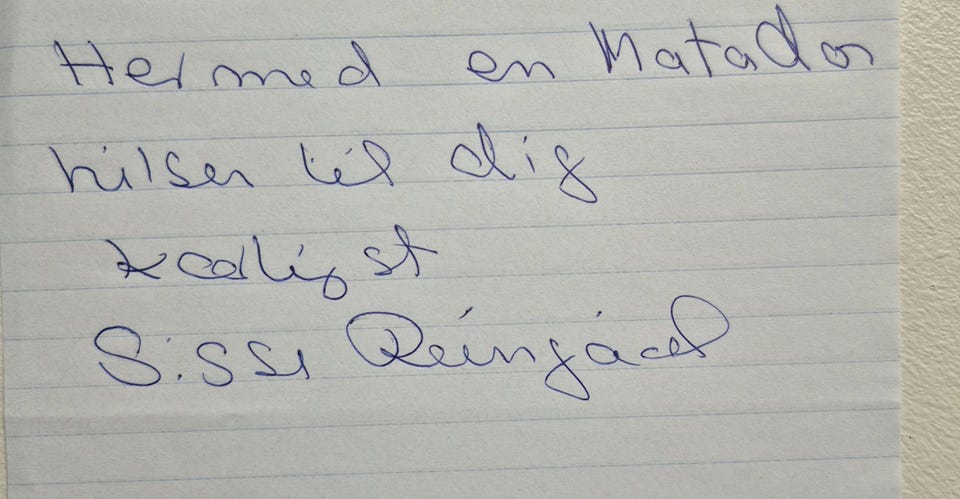 Hermed en Matador
hilsen til dig
kedligst
Sissi Reingaard